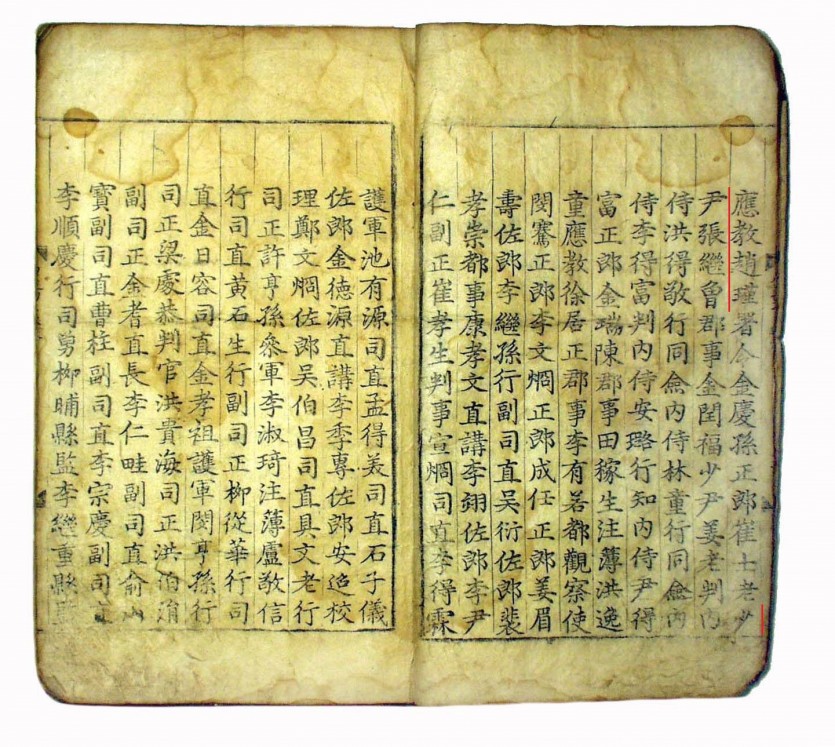 應教趙瑾署令金慶孫正郎崔士老少
尹張繼曾郡事金閏福少尹姜老判內
侍洪得敬行同僉內侍林童行同僉內
侍李得富判內侍安璐行知內侍尹得
富正郎金瑞陳郡事田稼生注薄洪逸
童應教徐居正郡事李有若都觀察使
閔騫正郎李文烱正郎成任正郎姜眉
壽佐郎李繼孫行副司直吳衍佐郎裴
孝崇都事康孝文直講李翊佐郎李尹
仁副正崔孝生判事宣烱司直李得霖
護軍池有源司直孟得義司直石子儀
佐郎金德源直講李季專佐郎安迨校
理鄭文烱佐郎吳伯昌司直具文老行
司正許亨孫叅軍李淑琦注薄盧敬信
行司直黃石生行副司正柳從華行司
直金日容司直金孝祖護軍閔亨孫行
司正梁處恭判官洪貴海司正洪泊
副司正金者直長李仁畦副司直俞山
寶副司直曹柱副司直李宗慶副司直
李順慶行司勇柳晡縣監李繼重縣監